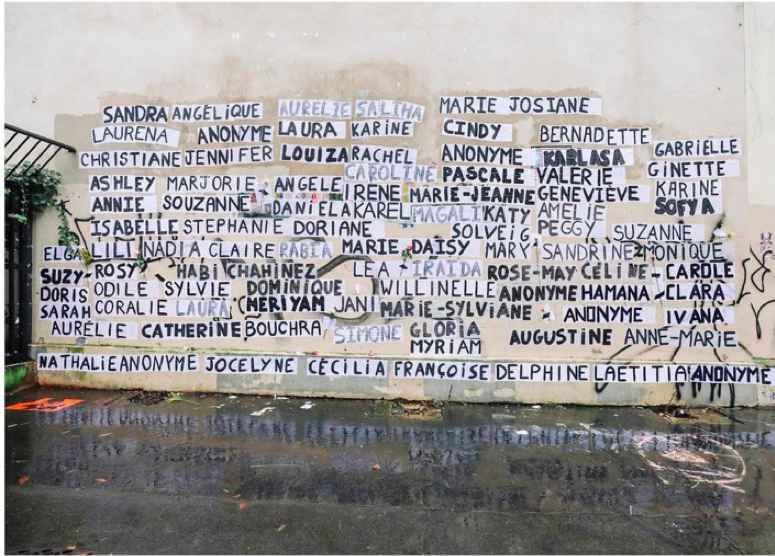 SANDRA ANGÉLIQUE AURELIE SALIHA MARIE JOSIANE
LAURENA ANONYME LAURA KARINE CINDY BERNADETTE
CHRISTIANE JENNIFER LOUIZA RACHEL ANONYME KARLASA GABRIELLE
CAROLINE PASCALE VALERIE GINETTE
ASHLEY MARJORIE ANGELE IRENE MARIE-JEANNE GENEVIÈVE KARINE
ANNIE SOUZANNE DANIELA KAREL MAGALI KATY AMELIE SOFYA
ISABELLE STEPHANIE DORIANE SOLVEIG PEGGY SUZANNE
ELGA LILI NADIA CLAIRE RABIA MARIE DAISY MARY SANDRINE MONIQUE
SUZY ROSY HABI CHAHINEZ LEA IRAIDA ROSE-MAY CÉLINE CAROLE
DORIS ODILE SYLVIE DOMINIQUE WILLINELLE ANONYME HAMANA CLARA
SARAH CORALIE LAURA MERIYAM JANI MARIE-SYLVIANE ANONYME IVANA
AURÉLIE CATHERINE BOUCHRA SIMONE GLORIA AUGUSTINE ANNE-MARIE
MYRIAM
NATHALIE ANONYME JOCELYNE CÉCILIA FRANÇOISE DELPHINE LAETITIA ANONYME